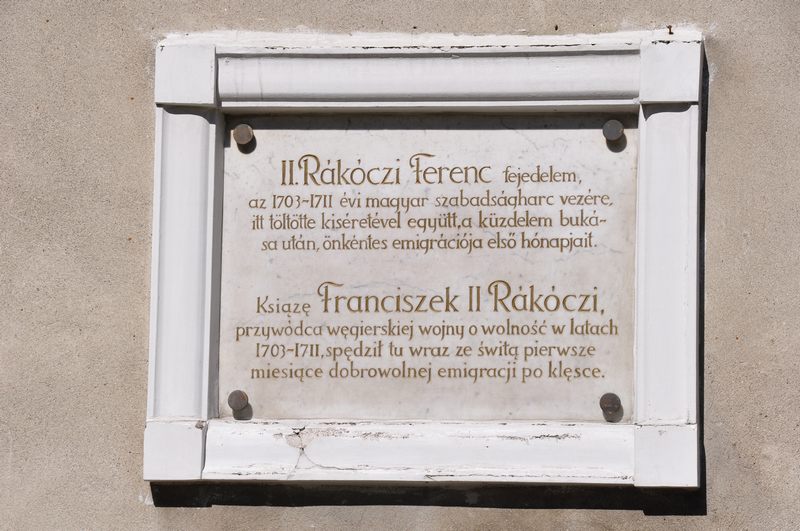 II. Rákóczi Ferenc fejedelem,
az 1703-1711 évi magyar szabadságharc vezére,
itt töltötte kíséretével együtt, a küzdelem buká-
sa után, önkéntes emigrációja első hónapjait.
Książę Franciszek II Rákóczi,
przywódca węgierskiej wojny o wolność w latach
1703-1711, spędził tu wraz ze świtą pierwsze
miesiące dobrowolnej emigracji po klęsce.